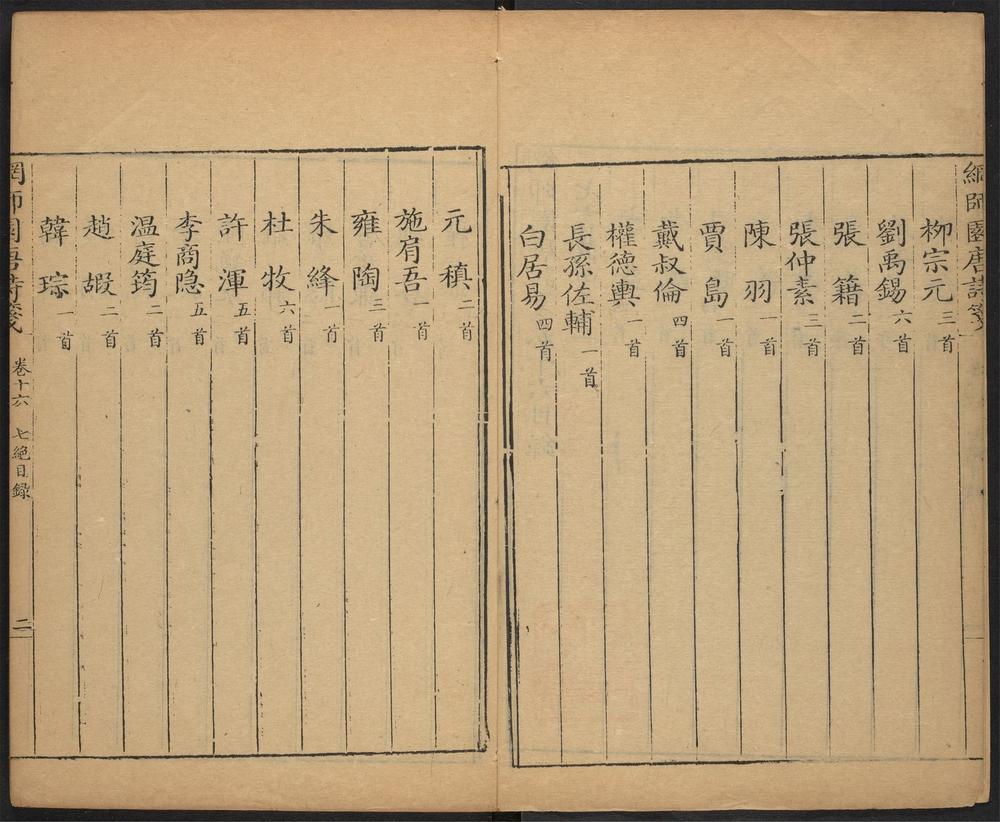 網師園唐詩箋
柳宗元 三首
劉禹錫 六首
張籍 二首
張仲素 三首
陳羽 一首
賈島 一首
戴叔倫 四首
權德輿 一首
長孫佐輔 一首
白居易 四首
元稹 二首
施肩吾 一首
雍陶 三首
朱絳 一首
杜牧 六首
許渾 五首
李商隐 五首
温庭筠 二首
趙嘏 二首
韓琮 一首
網師園唐詩箋 卷十六 七絕目録 二